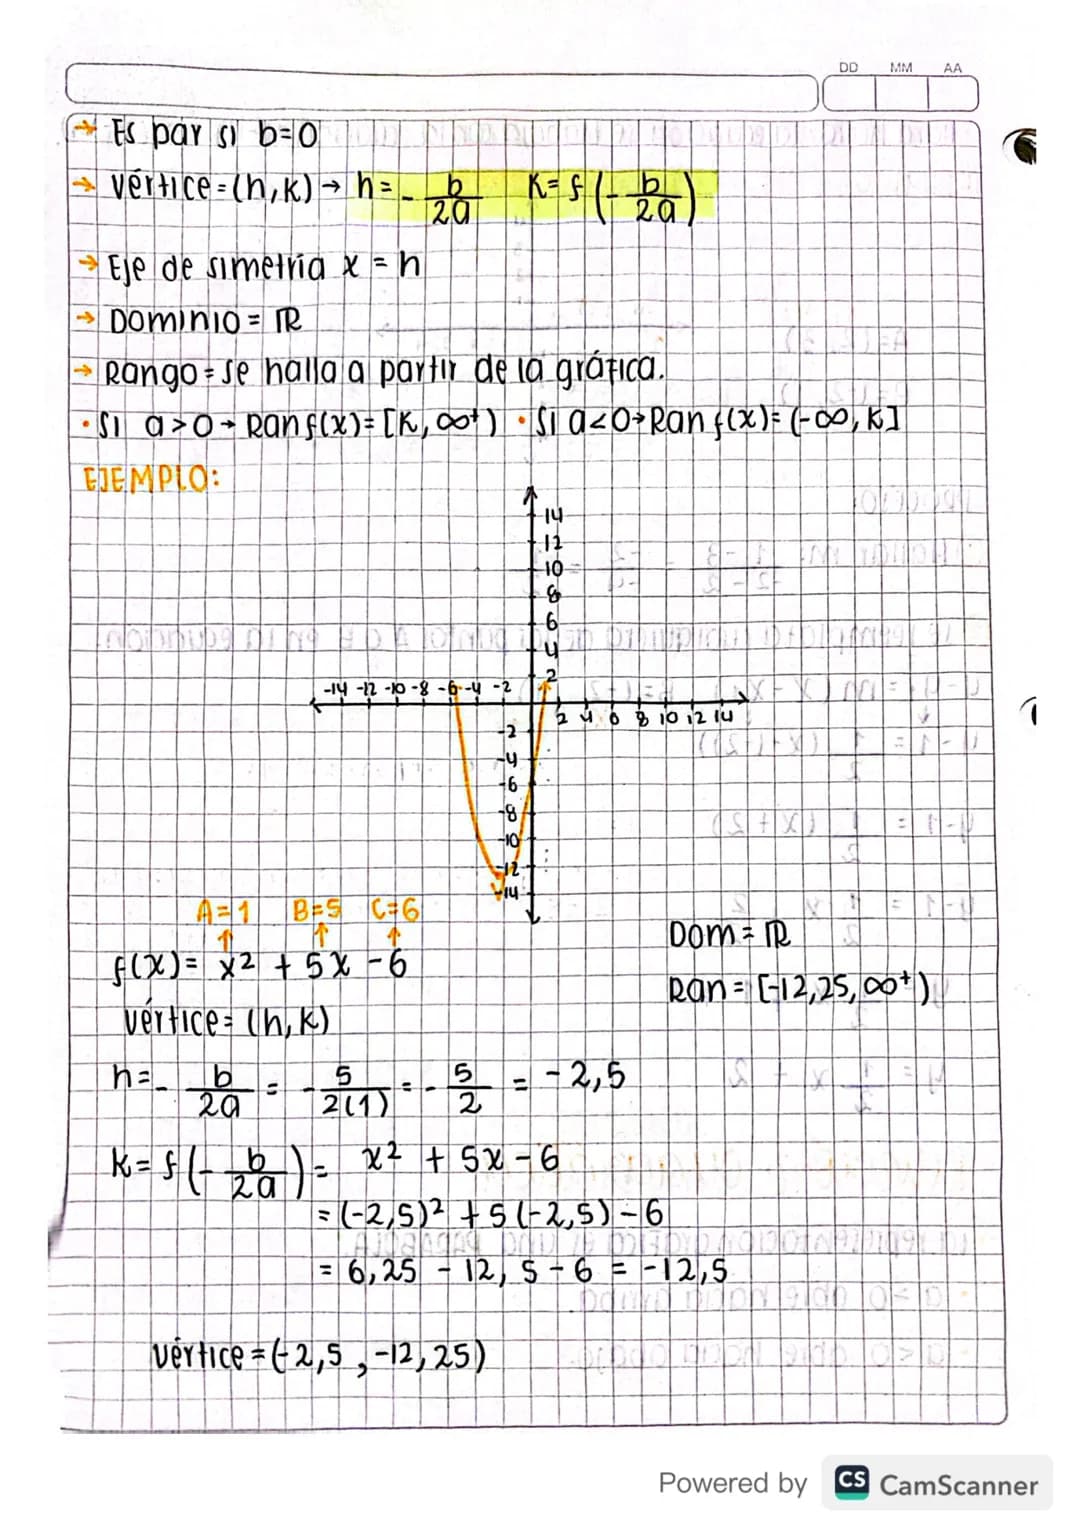 DD MM AA
→ Es par si b=0
→ Vértice=(h,k) → h= - b/2a K= f(- b/2a)
→ Eje de simetría x = h
→ Dominio = ℝ
→ Rango = se halla a partir de la gráfica.
• Si a>0 → Ran f(x)= [K, ∞⁺) • Si a<0 → Ran f(x)= (-∞, K]
EJEMPLO:
14
12
10
8
6
4
2
-14 -12 -10 -8 -6 -4 -2
2 4 6 8 10 12 14
-2
-4
-6
-8
-10
-12
-14
A=1 B=5 C=6
↑ ↑ ↑
f(x)= x² + 5x - 6
Dom = ℝ
Ran = [-12,25, ∞⁺)
vértice= (h,k)
h= - b/2a = - 5/2(1) = - 5/2 = -2,5
K= f(- b/2a) = x² + 5x - 6
= (-2,5)² + 5(-2,5) - 6
= 6,25 - 12,5 - 6 = -12,5
vértice = (-2,5 , -12,25)
Powered by CS CamScanner